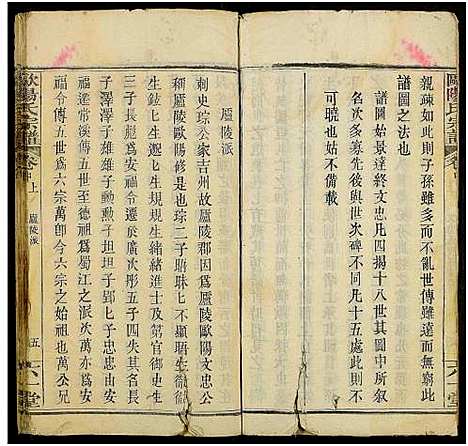 歐陽氏宗譜
親疎如此則子孫雖多而不亂世傳雖遠而無窮此
譜圖之法也
此圖於本派凡四揭十八世其圖中所叙
名次多寡先後與世次碑不同凡十五處此則不
可曉也不備載
六一堂
歐陽氏宗譜
卷中上
廬陵派
五
廬陵派
刺史琮公家吉州故廬陵郡因爲廬陵歐陽文忠公
銘稱廬陵歐陽修是也琮二子瑭珠七不顯瑭生
生鉉七生遜七生緒緒進士及第官御史生
三子長彪爲安福令彪二子
子澤澤子雄雄子勳勳子坦坦子郢七子忠忠南安
福遂常溪傳五世至德祖爲蜀江之派次萬亦爲安
福令傳五世爲六宗萬卽今六宗之始祖也萬公兄